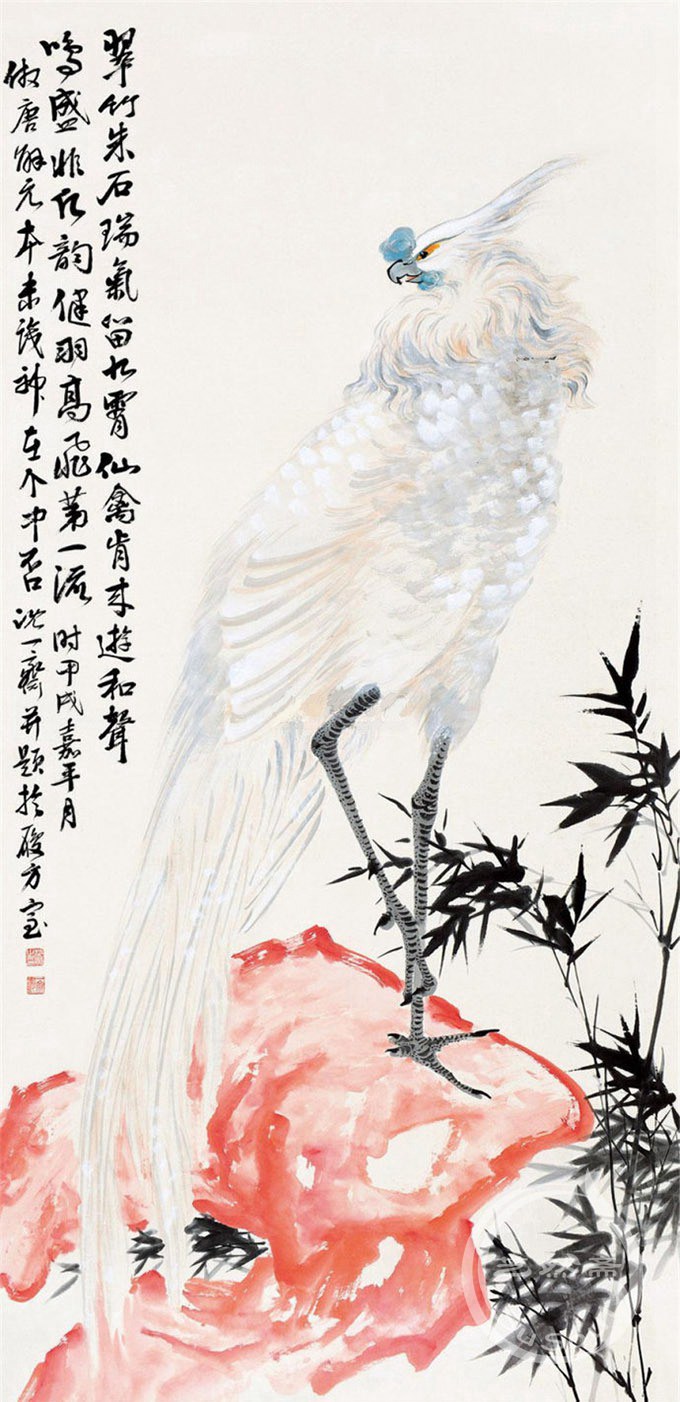 翠竹朱石瑞氣留九霄仙禽肯来遊和聲
鳴盛非凡韵健羽高飛第一流 时甲戌嘉平月
倣唐解元本未識神在个中否 沈一齋并題於方室